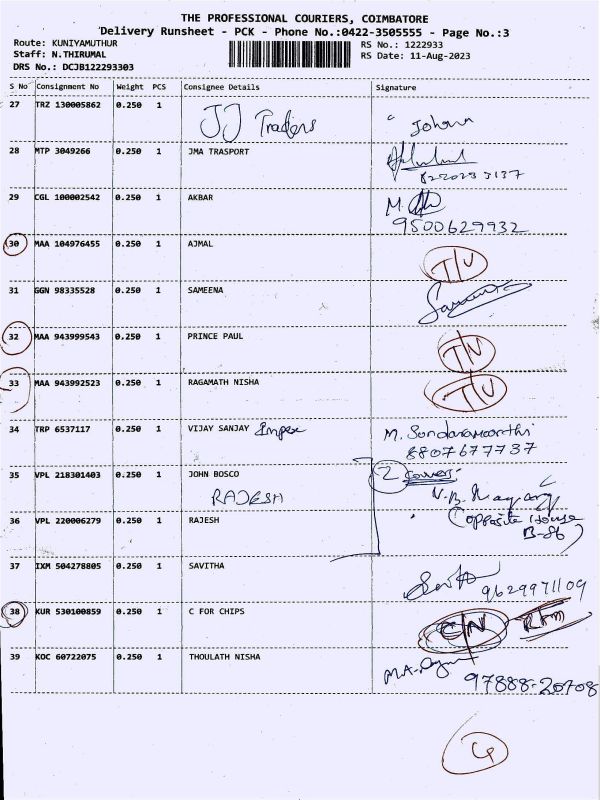 THE PROFESSIONAL COURIERS, COIMBATORE
Delivery Runsheet - PCK - Phone No.:0422-3505555 - Page No.:3
Route: KUNIYAMUTHUR RS No.: 1222933
Staff: N.THIRUMAL RS Date: 11-Aug-2023
DRS No.: DCJB122293303
S No Consignment No Weight PCS Consignee Details Signature
27 TRZ 130005862 0.250 1 JJ Traders
28 MTP 3049266 0.250 1 JMA TRASPORT
29 CGL 100002542 0.250 1 AKBAR M.
9500629932
30 MAA 104976455 0.250 1 AJMAL
31 GGN 98335528 0.250 1 SAMEENA
32 MAA 943999543 0.250 1 PRINCE PAUL T/N
33 MAA 943992523 0.250 1 RAGAMATH NISHA
34 TRP 6537117 0.250 1 VIJAY SANJAY Impex M. Sundaramoorthi
8807677737
35 VPL 218301403 0.250 1 JOHN BOSCO 2 Covers
RAJESH
36 VPL 220006279 0.250 1 RAJESH (Opposite House
B-86)
37 IXM 504278805 0.250 1 SAVITHA
9629971109
38 KUR 530100859 0.250 1 C FOR CHIPS C/N
39 KOC 60722075 0.250 1 THOULATH NISHA M.A.
97888-20708